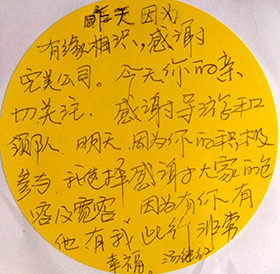 昨天因为
有缘相识，感谢
完美公司。今天你的亲
切关注，感谢导游和
领队，明天，因为你的积极
参与，我选择感谢于大家的包
容及宽容，因为有你有
他有我此行非常
幸福。